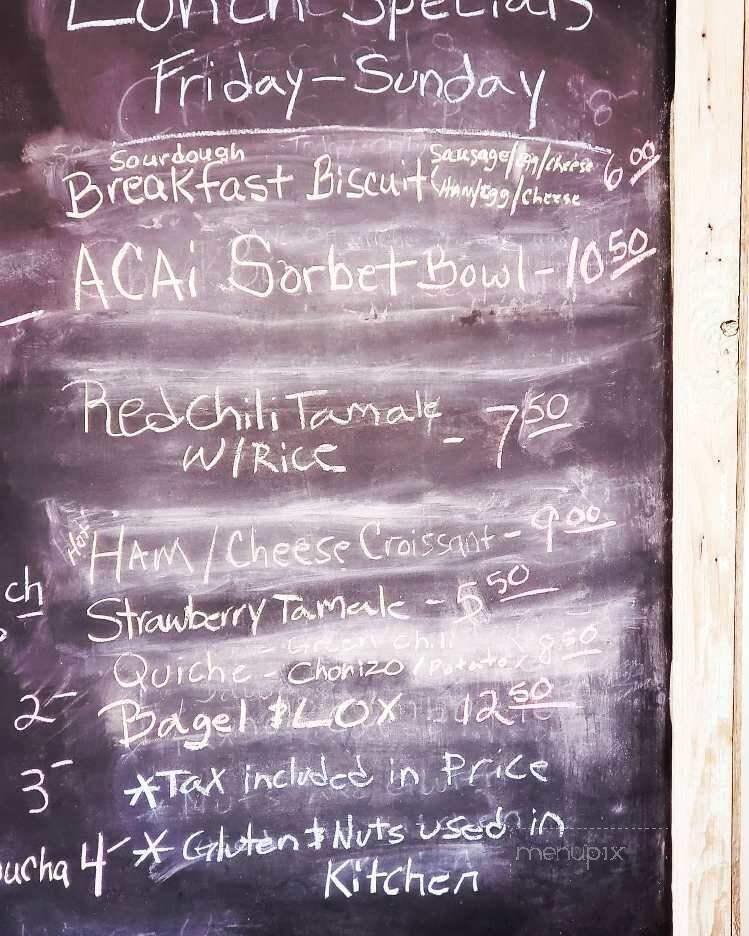 Lunch Specials
Friday-Sunday
Sourdough
Breakfast Biscuit
Sausage/Egg/cheese
Ham/Egg/Cheese
6 00
ACAi Sorbet Bowl - 10 50
Red Chili Tamale - 7 50
W/Rice
Hot
HAM/Cheese Croissant - 9 00
ch
Strawberry Tamale - 5 50
Green Chili
Quiche - Chorizo/Potato 8 50
2-
Bagel & LOX 12 50
3-
*Tax included in Price
ucha 4-
* Gluten & Nuts used in
Kitchen
menupix